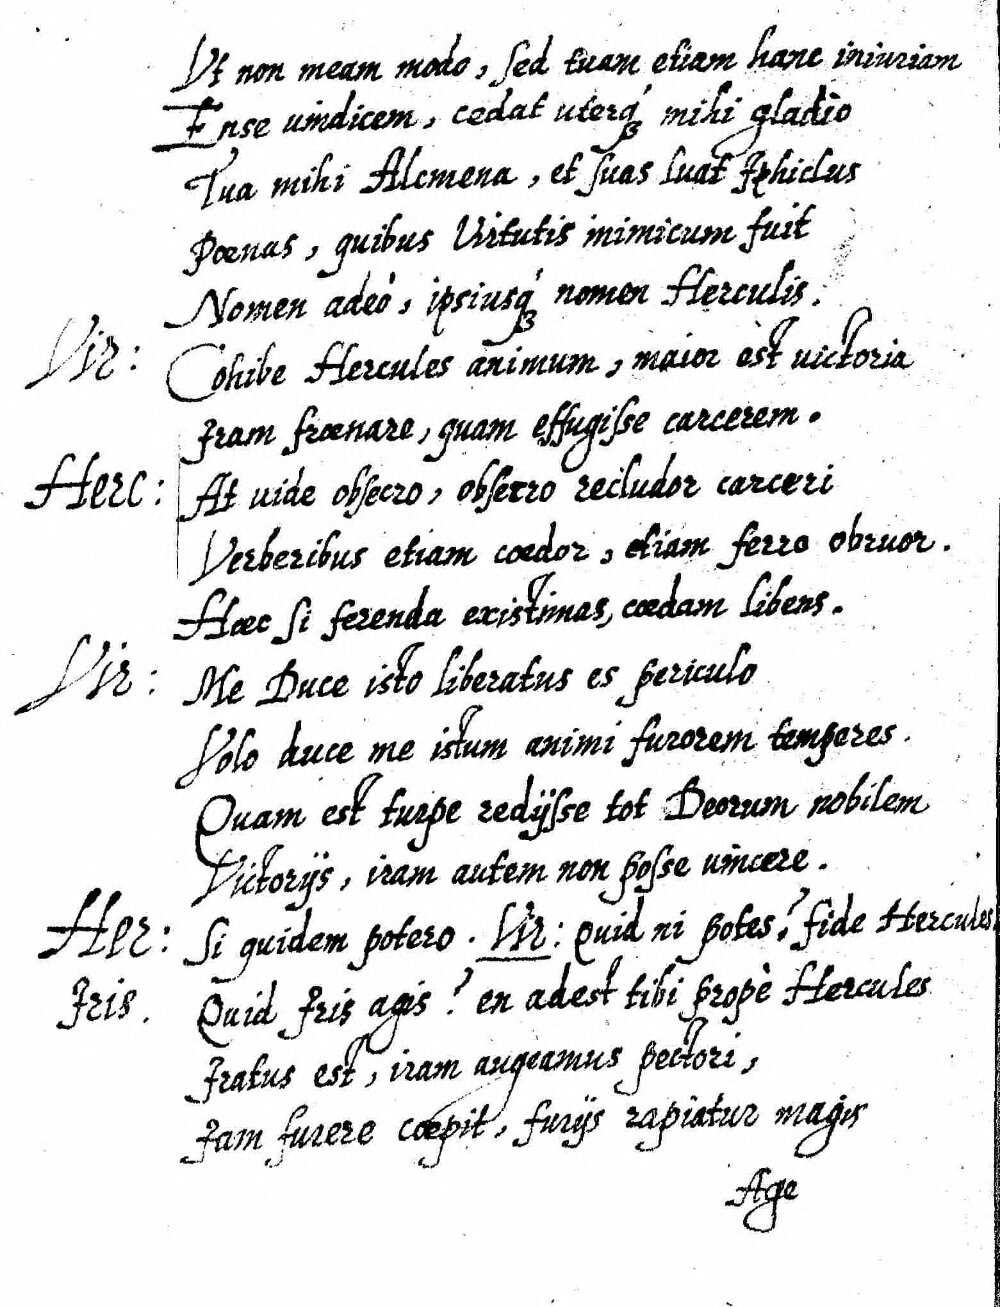 Vt non meam modo, sed tuam etiam hanc iniuriam
Ense uindicem, cedat uterq́ꝫ mihi gladio
Tua mihi Alcmena, et suas luat Iphiclus
Pœnas, quibus Virtutis inimicum fuit
Nomen adeò, ipsiusq́ꝫ nomen Herculis.
Vir: Cohibe Hercules animum, maior est uictoria
Iram frœnare, quam effugisse carcerem.
Herc: At uide obsecro, obsecro recludor carceri
Verberibus etiam cœdor, etiam ferro obruor.
Hæc si ferenda existimas, cœdam libens.
Vir: Me Duce isto liberatus es periculo
Volo duce me istum animi furorem temperes.
Quam est turpe redijsse tot Deorum nobilem
Victorijs, iram autem non posse uincere.
Her: Si quidem potero. Vir: Quid ni potes? fide Hercules
Iris. Quid Iris agis? en adest tibi propè Hercules
Iratus est, iram augeamus pectori,
Iam furere cœpit, furijs rapiatur magis
Age